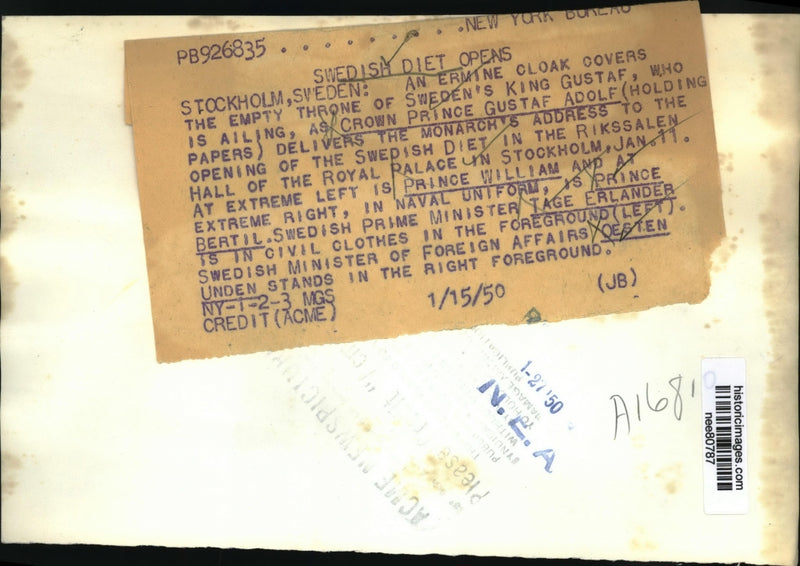 PB926835 . . . . . . . . . NEW YORK BUREAU
SWEDISH DIET OPENS
STOCKHOLM, SWEDEN: AN ERMINE CLOAK COVERS
THE EMPTY THRONE OF SWEDEN'S KING GUSTAF, WHO
IS AILING, AS CROWN PRINCE GUSTAF ADOLF (HOLDING
PAPERS) DELIVERS THE MONARCH'S ADDRESS TO THE
OPENING OF THE SWEDISH DIET IN THE RIKSSALEN
HALL OF THE ROYAL PALACE IN STOCKHOLM, JAN. 11.
AT EXTREME LEFT IS PRINCE WILLIAM AND AT
EXTREME RIGHT, IN NAVAL UNIFORM, IS PRINCE
BERTIL. SWEDISH PRIME MINISTER TAGE ERLANDER
IS IN CIVIL CLOTHES IN THE FOREGROUND (LEFT).
SWEDISH MINISTER OF FOREIGN AFFAIRS OESTEN
UNDEN STANDS IN THE RIGHT FOREGROUND.
NY-1-2-3 MGS 1/15/50 (JB)
CREDIT (ACME)
1-27'50
N.E.A
ACME NEWSPICTURES
Please
A1681
historicimages.com
nee80787